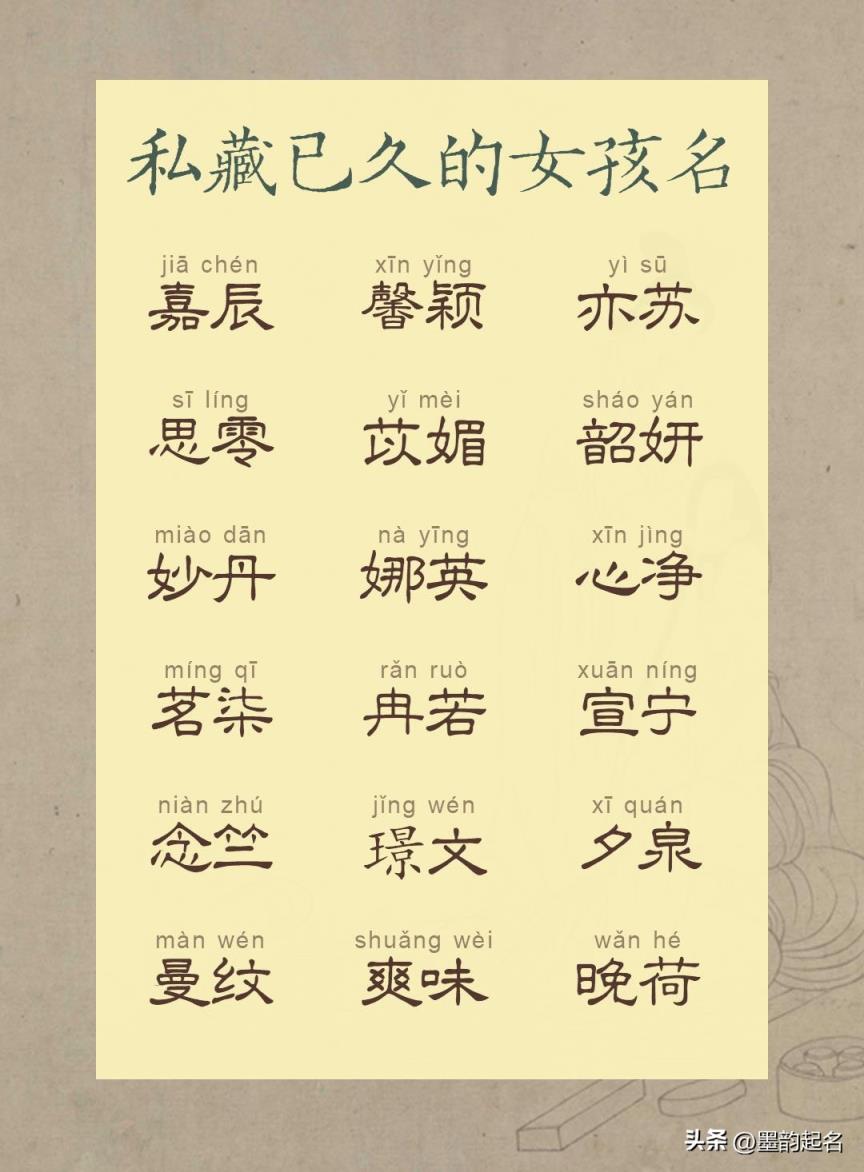 私藏已久的女孩名
jiā chén xīn yǐng yì sū
嘉辰 馨颖 亦苏
sī líng yǐ mèi sháo yán
思零 苡媚 韶妍
miào dān nà yīng xīn jìng
妙丹 娜英 心净
míng qī rǎn ruò xuān níng
茗柒 冉若 宣宁
niàn zhú jǐng wén xī quán
念竺 璟文 夕泉
màn wén shuǎng wèi wǎn hé
曼纹 爽味 晚荷
头条 @墨韵起名